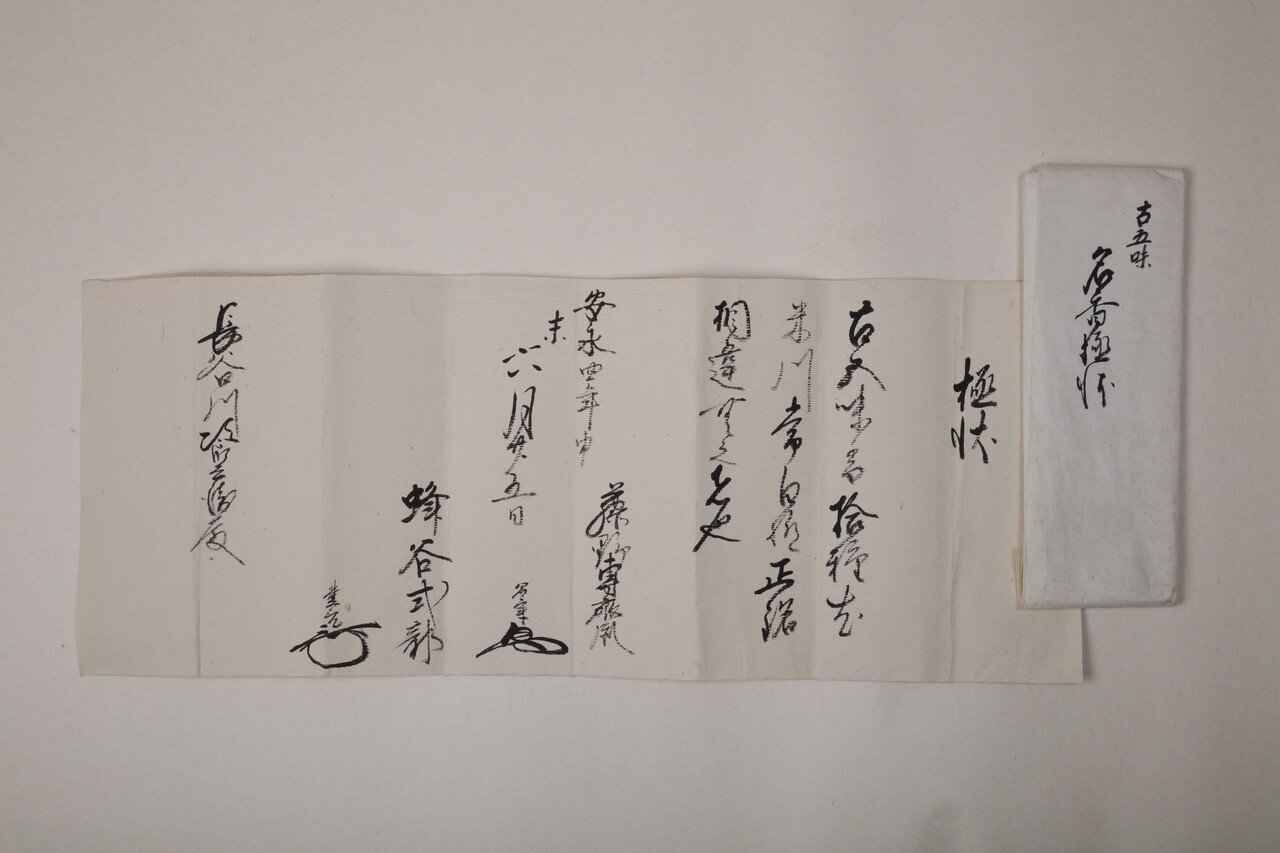 古五味
名香極状
極状
古五味名拾種者
米川常白極正銘
相違無之者也
安永四年中
末六月廿五日
藤野専齋
蜂谷式部
長谷川治郎兵衛殿